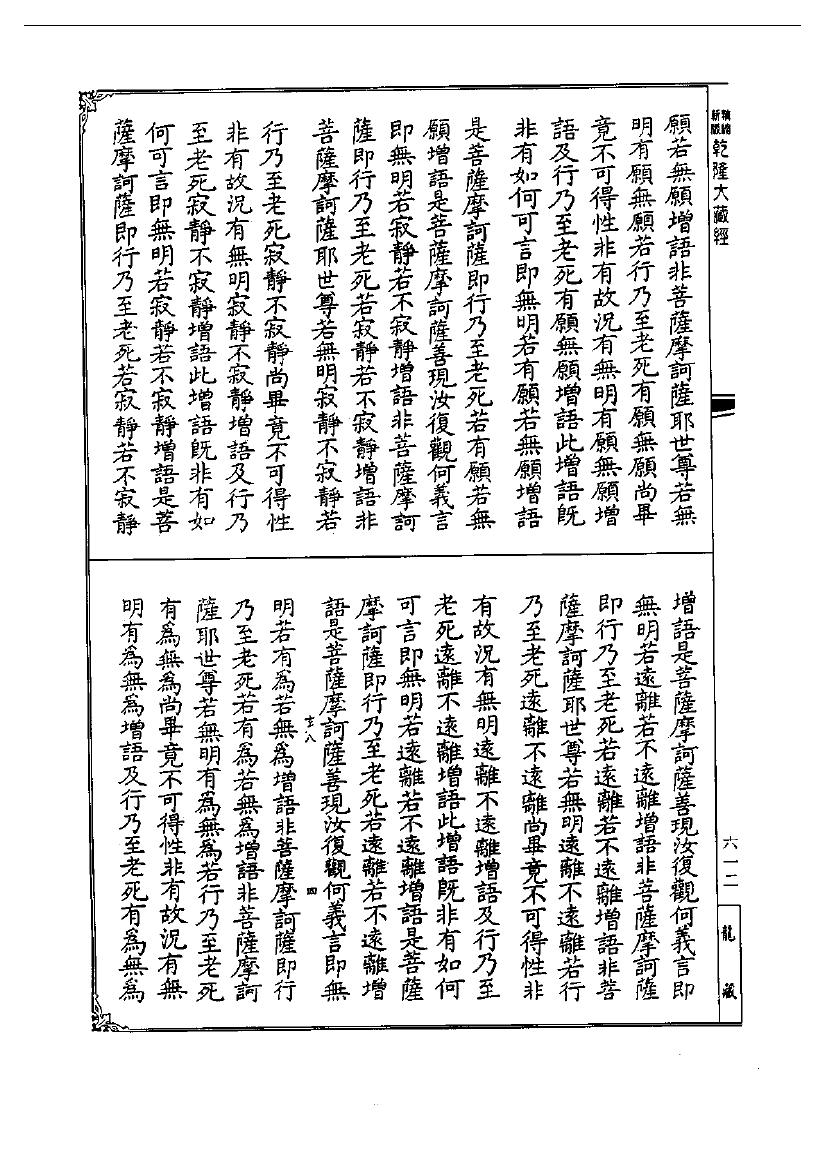 新編縮版
乾隆大藏經
願若無願增語非菩薩摩訶薩耶世尊若無
明有願無願若行乃至老死有願無願尚畢
竟不可得性非有故況有無明有願無願增
語及行乃至老死有願無願增語此增語既
非有如何可言即無明若有願若無願增語
是菩薩摩訶薩即行乃至老死若有願若無
願增語是菩薩摩訶薩善現汝復觀何義言
即無明若寂靜若不寂靜增語非菩薩摩訶
薩即行乃至老死若寂靜若不寂靜增語非
菩薩摩訶薩耶世尊若無明寂靜不寂靜若
行乃至老死寂靜不寂靜尚畢竟不可得性
非有故況有無明寂靜不寂靜增語及行乃
至老死寂靜不寂靜增語此增語既非有如
何可言即無明若寂靜若不寂靜增語是菩
薩摩訶薩即行乃至老死若寂靜若不寂靜
增語是菩薩摩訶薩善現汝復觀何義言即
無明若遠離若不遠離增語非菩薩摩訶薩
即行乃至老死若遠離若不遠離增語非菩
薩摩訶薩耶世尊若無明遠離不遠離若行
乃至老死遠離不遠離尚畢竟不可得性非
有故況有無明遠離不遠離增語及行乃至
老死遠離不遠離增語此增語既非有如何
可言即無明若遠離若不遠離增語是菩薩
摩訶薩即行乃至老死若遠離若不遠離增
語是菩薩摩訶薩善現汝復觀何義言即無
八
四
明若有為若無為增語非菩薩摩訶薩即行
乃至老死若有為若無為增語非菩薩摩訶
薩耶世尊若無明有為無為若行乃至老死
有為無為尚畢竟不可得性非有故況有無
明有為無為增語及行乃至老死有為無為
六一二
龍藏